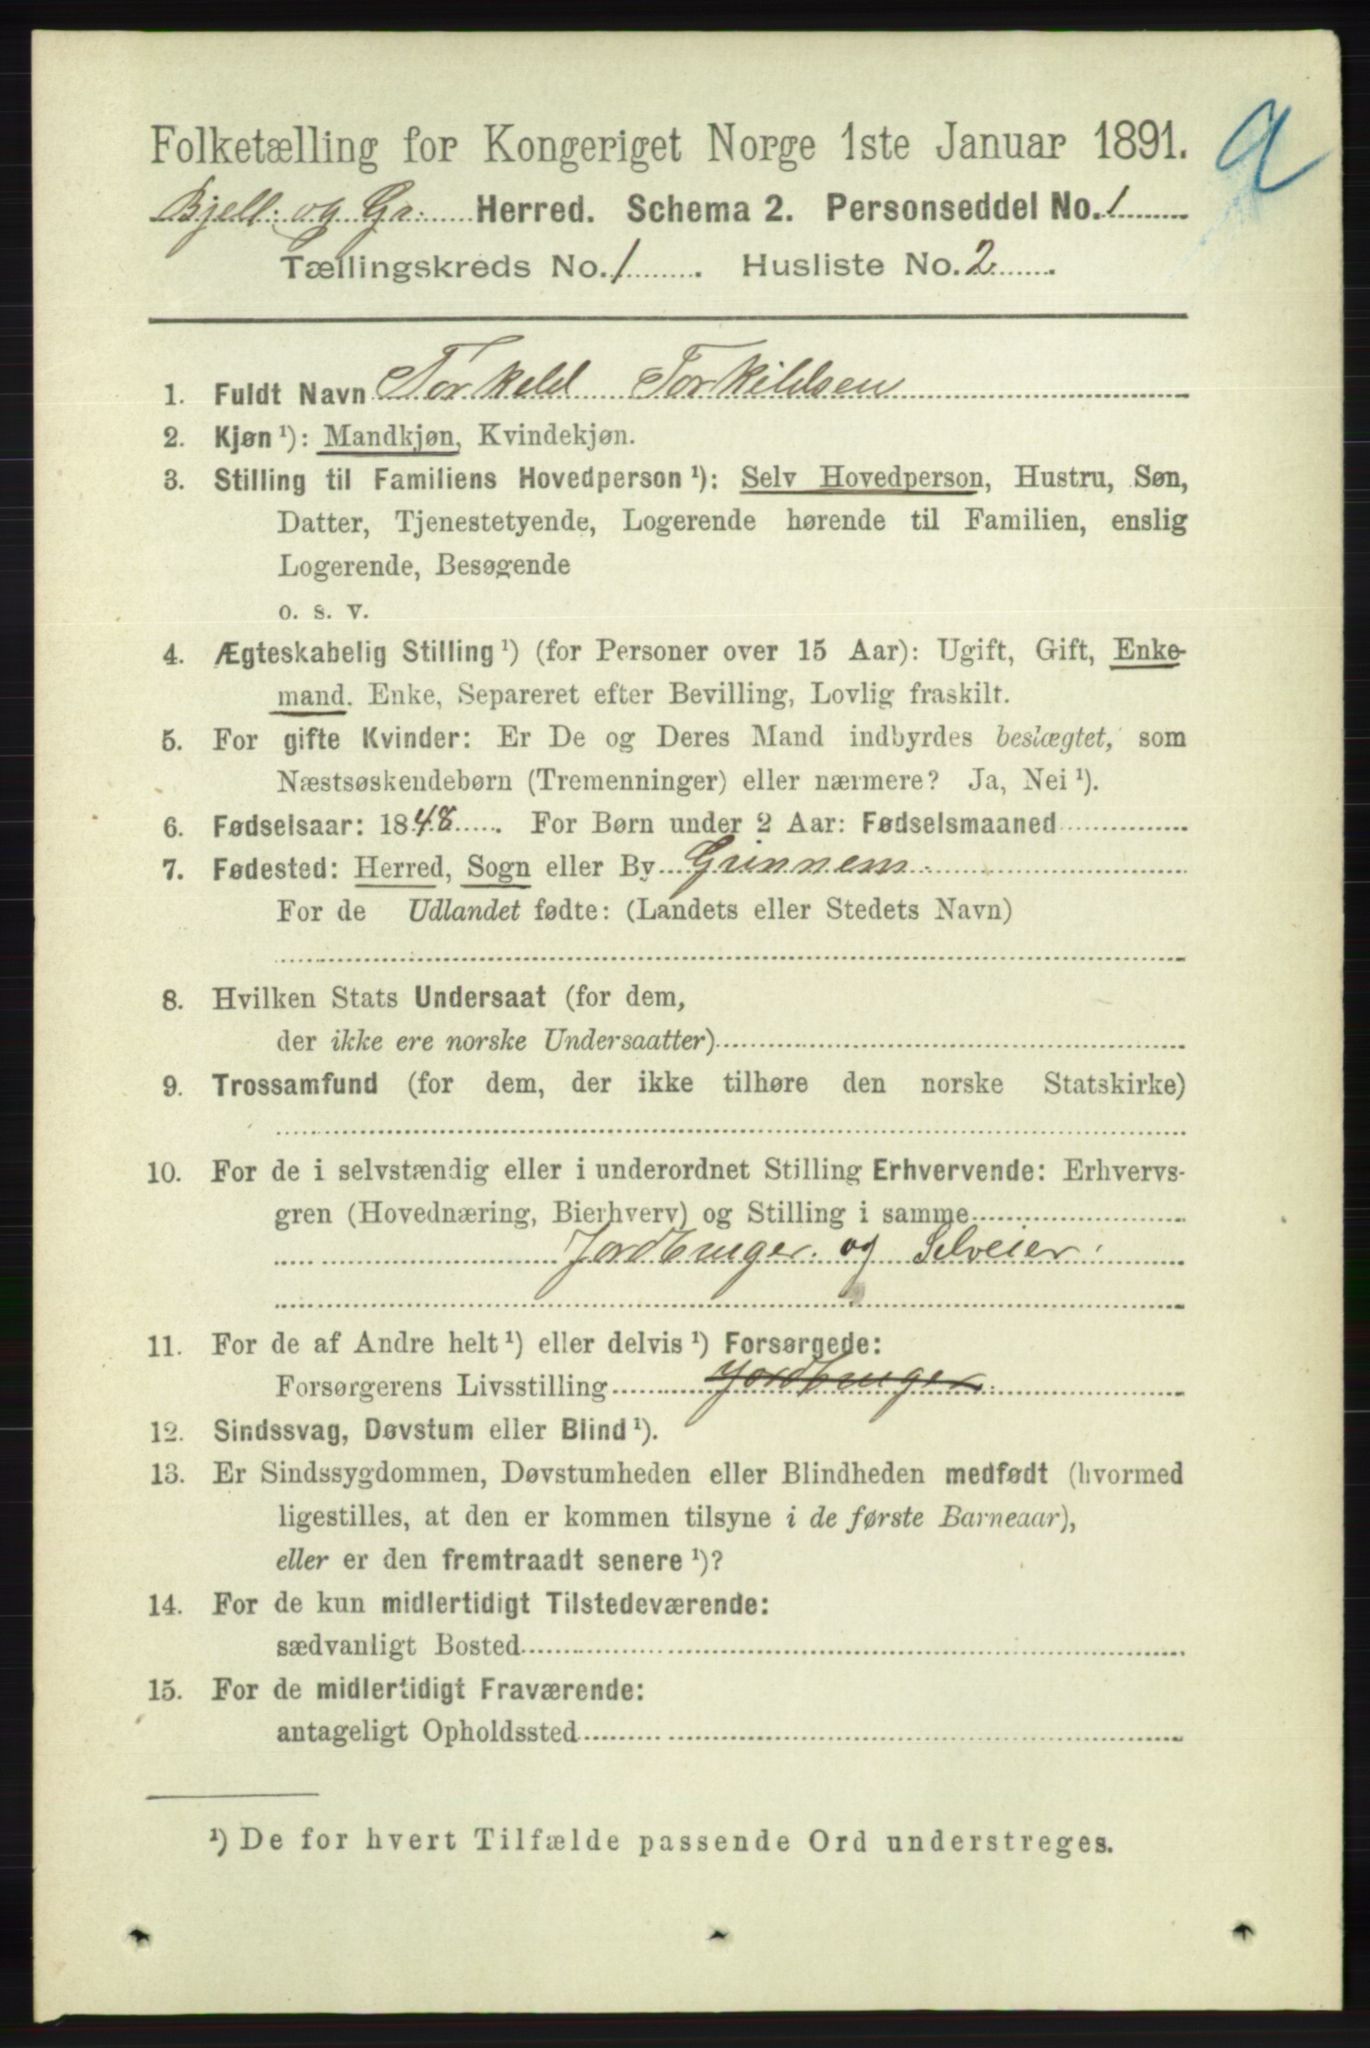 Folketælling for Kongeriget Norge 1ste Januar 1891.
a
Bjell. og Gr. Herred. Schema 2. Personseddel No. 1
Tællingskreds No. 1. Husliste No. 2
1. Fuldt Navn Torkeld Torkildsen
2. Kjøn ¹): Mandkjøn, Kvindekjøn.
3. Stilling til Familiens Hovedperson ¹): Selv Hovedperson, Hustru, Søn,
Datter, Tjenestetyende, Logerende hørende til Familien, enslig
Logerende, Besøgende
o. s. v.
4. Ægteskabelig Stilling ¹) (for Personer over 15 Aar): Ugift, Gift, Enke-
mand. Enke, Separeret efter Bevilling, Lovlig fraskilt.
5. For gifte Kvinder: Er De og Deres Mand indbyrdes beslægtet, som
Næstsøskendebørn (Tremenninger) eller nærmere? Ja, Nei ¹).
6. Fødselsaar: 1848. For Børn under 2 Aar: Fødselsmaaned
7. Fødested: Herred, Sogn eller By Grinnem
For de Udlandet fødte: (Landets eller Stedets Navn)
8. Hvilken Stats Undersaat (for dem,
der ikke ere norske Undersaatter)
9. Trossamfund (for dem, der ikke tilhøre den norske Statskirke)
10. For de i selvstændig eller i underordnet Stilling Erhvervende: Erhvervs-
gren (Hovednæring, Bierhverv) og Stilling i samme
Jordbruger og Selveier
11. For de af Andre helt ¹) eller delvis ¹) Forsørgede:
Forsørgerens Livsstilling Jordbruger
12. Sindssvag, Døvstum eller Blind ¹).
13. Er Sindssygdommen, Døvstumheden eller Blindheden medfødt (hvormed
ligestilles, at den er kommen tilsyne i de første Barneaar),
eller er den fremtraadt senere ¹)?
14. For de kun midlertidigt Tilstedeværende:
sædvanligt Bosted
15. For de midlertidigt Fraværende:
antageligt Opholdssted
¹) De for hvert Tilfælde passende Ord understreges.